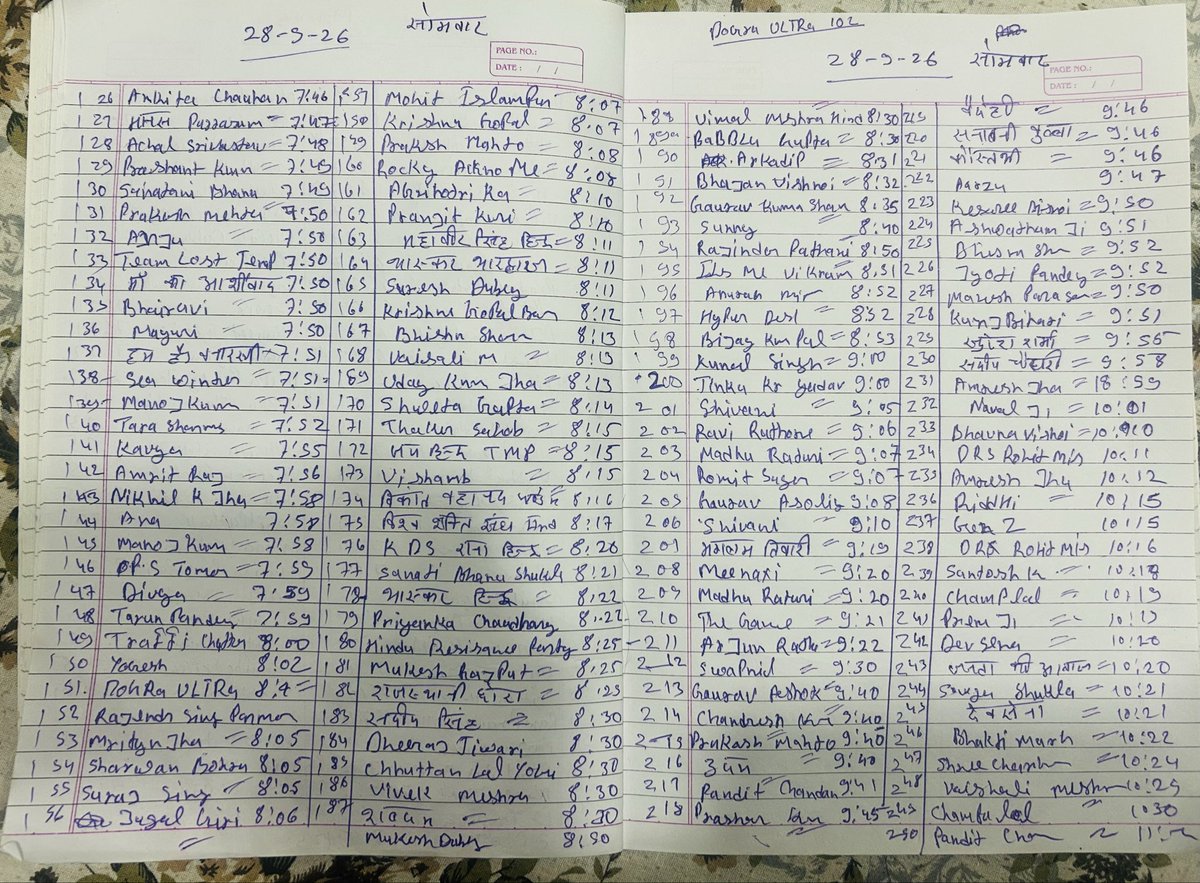 28-9-26 सोमवार
PAGE NO.:
DATE: / /
126 Ankita Chauhan 7:46
127 Parraram = 7:47
128 Achal Srivastav = 7:48
129 Prashant Kum = 7:49
130 Sanatani Bhanu 7:49
131 Prakash Mehta = 7:50
132 Anju = 7:50
133 Team Lost Temp 7:50
134 माँ का आशीर्वाद = 7:50
135 Bhairavi 7:50
136 Mayuri = 7:50
137 हम है बनारसी = 7:51
138 Sea Winder = 7:51
139 Manoj Kum = 7:51
140 Tara Sharma = 7:52
141 Kavya = 7:55
142 Amrit Raj = 7:56
143 Nikhil K Jha = 7:58
144 Ana 7:58
145 Manoj Kum = 7:58
146 S Tomar = 7:59
147 Divya = 7:59
148 Tarun Pandey = 7:59
149 Traffi 8:00
150 Yogesh 8:02
151. Dogra ULTRa 8:4 =
152 Rajendr Sing Parmar
153 Mrityn Jha = 8:05
154 Sharwan Bohra 8:05
155 Suraj Sing = 8:05
156 Jugal Giri = 8:06
157 Mohit Islampur 8:07
158 Krishna Gopal = 8:07
159 Prakash Mahto = 8:08
160 Rocky Me = 8:08
161 8:10
162 Pranjit Kuri = 8:10
163 महावीर सिंह हिन्दू = 8:11
164 भास्कार भारद्वाज = 8:11
165 Suresh Dubey 8:11
166 Krishna Gopal Ban 8:12
167 Bhishn Sharm 8:13
168 Vaisali M = 8:13
169 Uday Kum Jha = 8:13
170 Shweta Gupta = 8:14
171 Thakur Sahab = 8:15
172 जय हिन्द TMP = 8:15
173 Vishamb = 8:15
174 8:16
175 विश्व शक्ति 8:17
176 KDS राना हिन्दू = 8:20
177 Sanati Bhanu Shukla 8:21
178 भास्कार हिन्दू = 8:22
179 Priyanka Chaudhary 8:22
180 Hindu Resistance Party 8:25
181 Mukesh Rajput = 8:25
182 राजस्थानी छोरा = 8:25
183 संदीप सिंह = 8:30
184 Dheeraj Tiwari 8:30
185 Chhuttan Lal Yogi 8:30
186 Vivek Meshra 8:30
187 रावण = 8:30
Mukesh Dubey 8:50
Dogra ULTRa 102
28-9-26 सोमवार
PAGE NO.:
DATE: / /
189 Vimal Mshra Hind 8:30
189a BaBBLu Gupta = 8:30
190 Arkadip = 8:31
191 Bhajan Vishnoi = 8:32
192 Gaurav Kuma Sham 8:35
193 Sunny = 8:40
194 Rajinder Pathani 8:50
195 Its Me Vikram 8:51
196 Anurah mir 8:52
197 Hyper Desi 8:52
198 Brijay Km Pal = 8:53
199 Kunal Singh = 9:00
200 Tinku Kr Yadav 9:00
201 Shivani = 9:05
202 Ravi Rathore = 9:06
203 Madhu Raturi = 9:07
204 Romit Sagar = 9:07
205 Gaurav Asoliy 9:08
206 Shivani = 9:10
207 तिवारी = 9:19
208 Meenaxi = 9:20
209 Madhu Raturi = 9:20
210 The Game = 9:21
211 Arjun Radhe = 9:22
212 Swapnil = 9:30
213 Gaurav Ashok = 9:40
214 Chandresh Kr 9:40
215 Prakash Mahto 9:40
216 9:40
217 Pandit Chandan 9:41
218 Prashan Kum 9:45
219 = 9:46
220 सनातनी = 9:46
221 = 9:46
222 Aarzu 9:47
223 Kesaree = 9:50
224 Ashwatham Ji 9:51
225 Bhism Shm = 9:52
226 Jyoti Pandey = 9:52
227 Mahesh Parasar = 9:50
228 Kunj Bihari = 9:51
229 शर्मा = 9:55
230 संदीप चौधरी = 9:58
231 Amresh Jha = 18:59
232 Naval Ji = 10:01
233 Bhavna Vishnoi = 10:10
234 DRS Rohit Mis 10:11
235 Amresh Jha 10:12
236 Riddhi = 10:15
237 Gen Z = 10:15
238 DRS Rohit Mis 10:16
239 Santosh K = 10:18
240 Champlal = 10:19
241 Prem Ji = 10:19
242 Dev Sena = 10:20
243 जनता की आवाज = 10:20
244 Shukla = 10:21
245 देवसेना = 10:21
246 Bhakti Marh = 10:22
247 10:24
248 Vaishali Meshra 10:25
249 Champalal 1030
250 Pandit Chan =